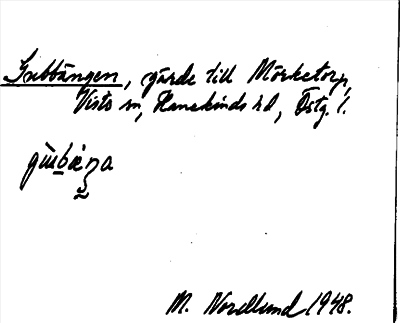 Gubbängen, gärde till Mörketorp,
Visto sn, Hanekinds hd, Östg. l.
M. Norellund 1948.